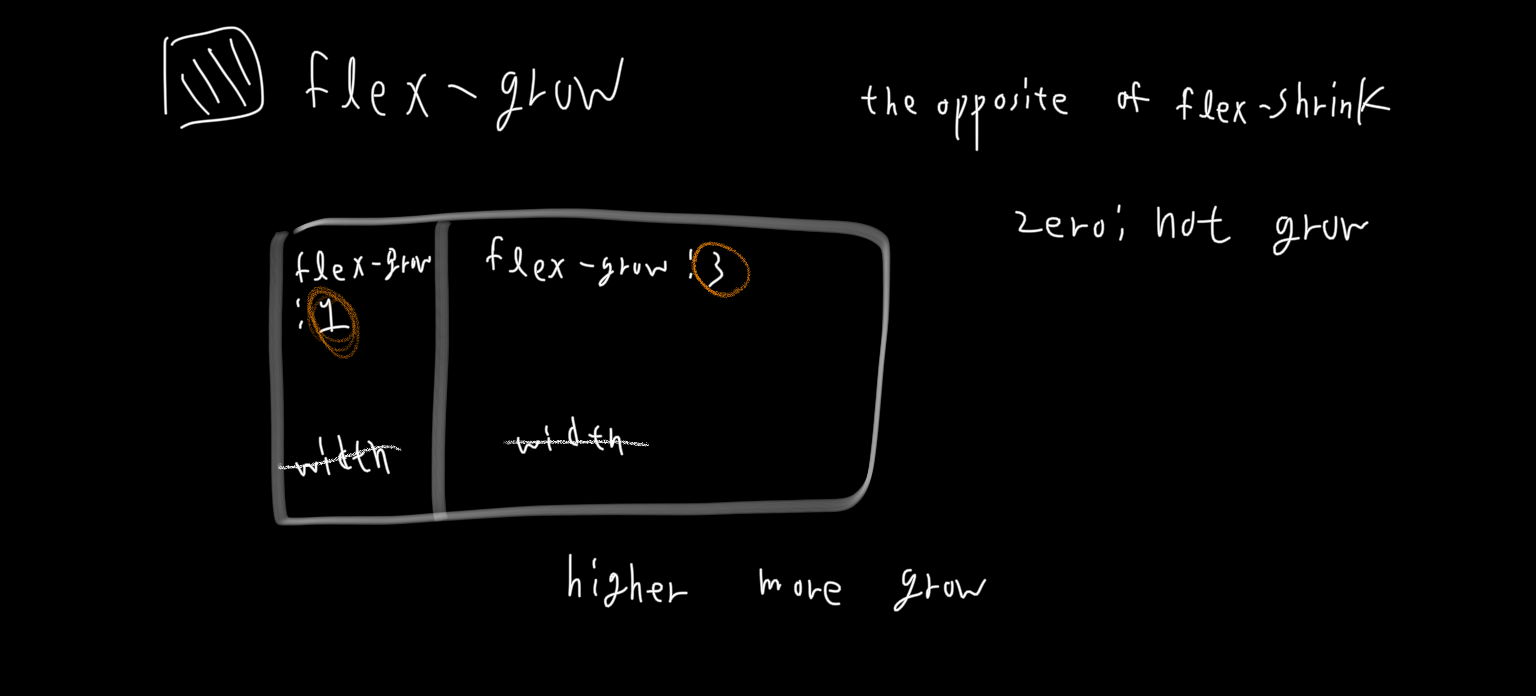 flex-grow
the opposite of flex-shrink
zero; not grow
flex-grow
:1
flex-grow:3
width
width
higher more grow